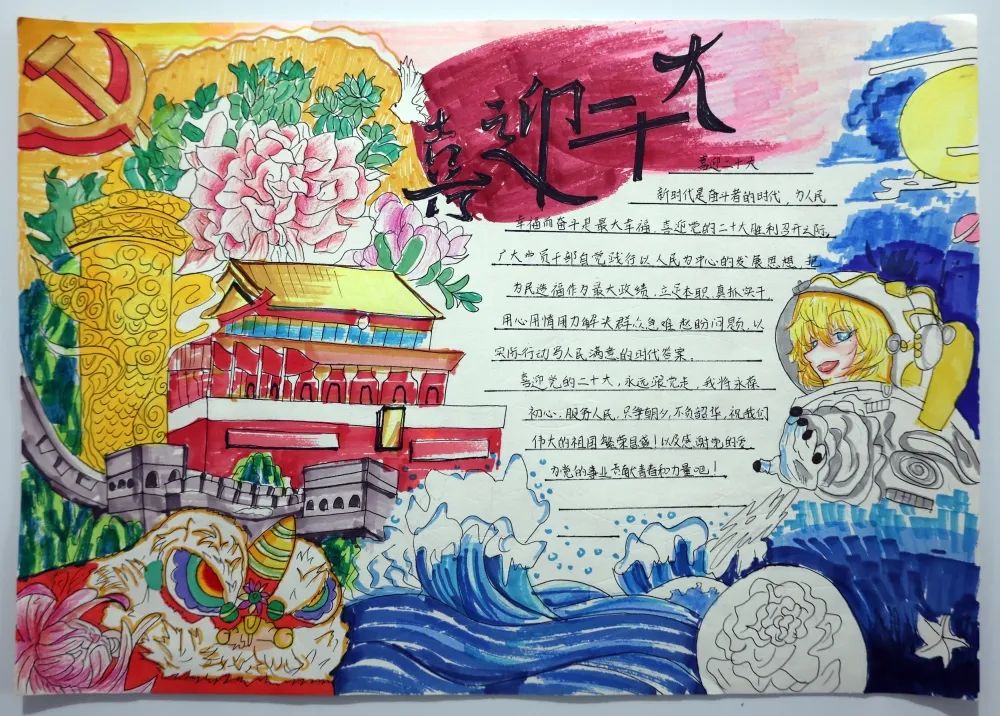 喜迎二十大
喜迎二十大
新时代是奋斗者的时代，为人民
幸福而奋斗是最大幸福，喜迎党的二十大胜利召开之际，
广大党员干部自觉践行以人民为中心的发展思想，把
为民造福作为最大政绩，立足本职，真抓实干，
用心用情用力解决群众急难愁盼问题，以
实际行动写人民满意的时代答案。
喜迎党的二十大，永远跟党走，我将永葆
初心，服务人民，只争朝夕，不负韶华，祝我们
伟大的祖国繁荣昌盛！以及感谢党的爱
为党的事业贡献青春和力量吧！